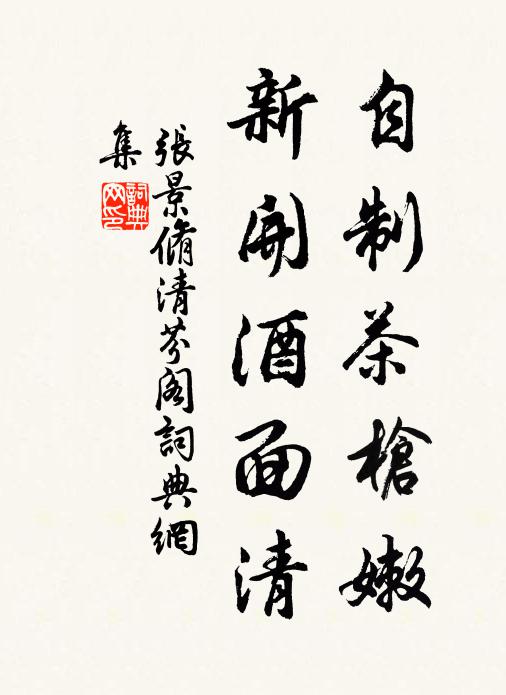 自制茶槍嫩
新開酒面清
張景脩清芬阁詞典網
集
詞典
网印